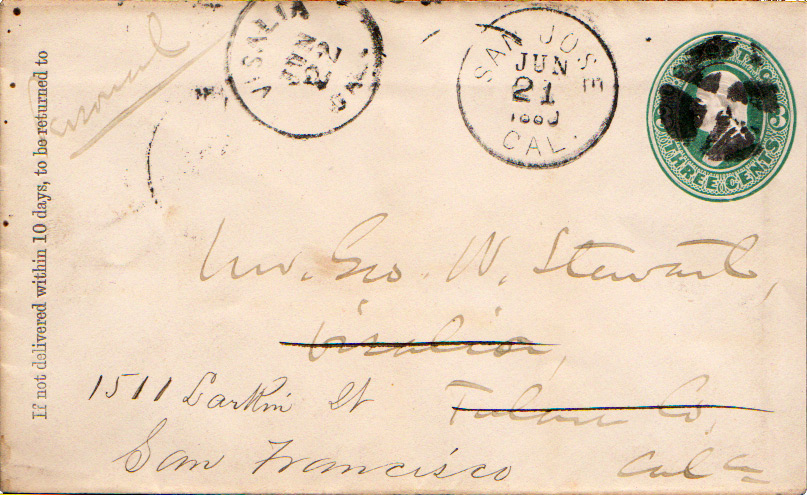 If not delivered within 10 days, to be returned to
Personal
VISALIA
JUN
22
CAL.
SAN JOSE
JUN
21
CAL.
THREE CENTS
Mr. Geo. W. Stewart,
Visalia,
1511 Larkin St Tulare Co,
San Francisco Cala